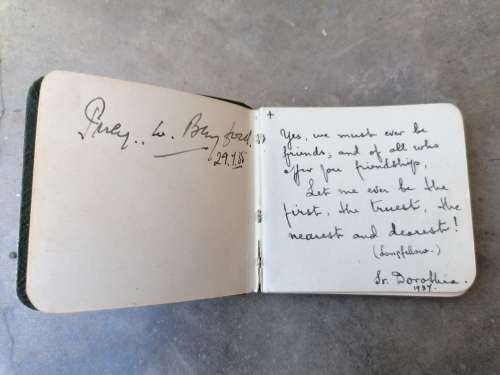 Percy. W. Bamford.
29.9.35
+
Yes, we must ever be
friends; and of all who
offer you friendship,
Let me ever be the
first, the truest, the
nearest and dearest!
(Longfellow.)
Sr. Dorothea.
1937.